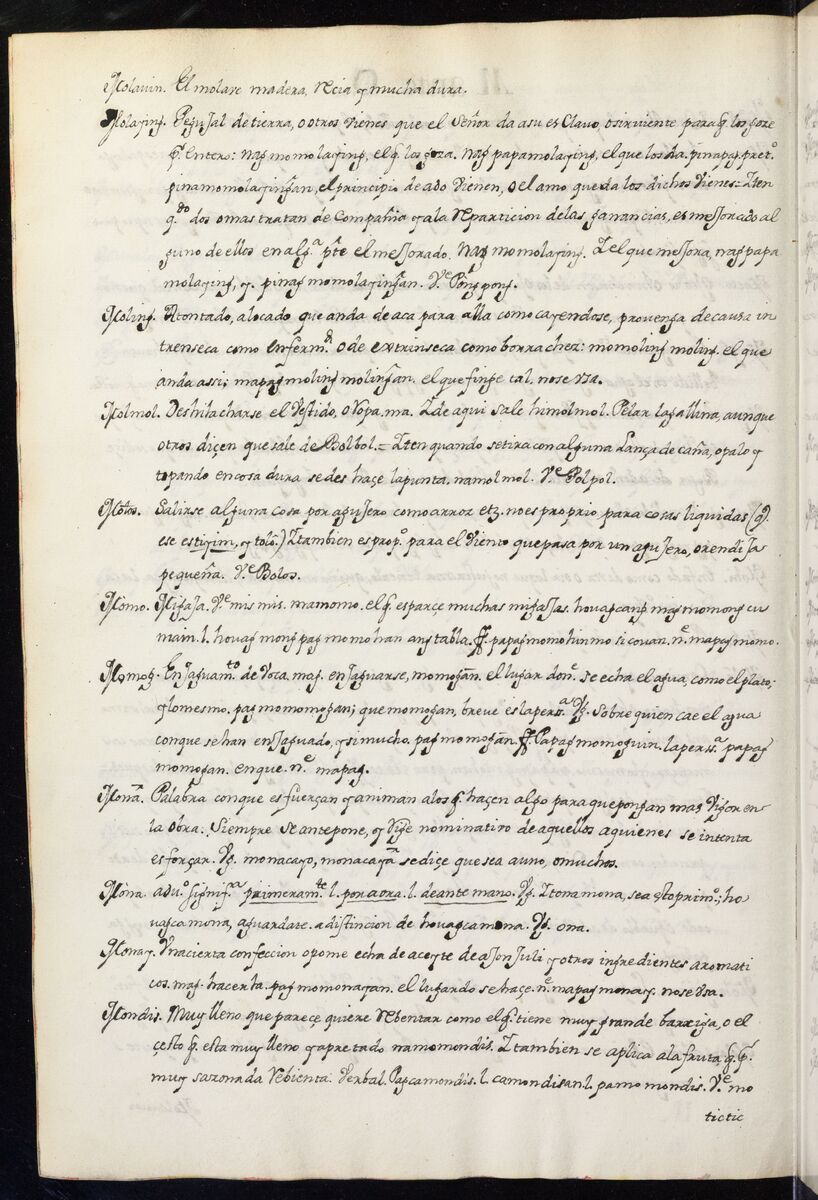 Molavin. El molave madera, Recia y mucha dura.
Molaying. Pegujal de tierra, o otros vienes que el Señor da a su esclavo, o sirviente para q̃ los goze
p.r entero: nag momolaying, el q̃ los goza. nag papamolaying, el que los da. pinapag, pret.o
pinamomolayingan, el principio de ado vienen, o el amo que da los dichos vienes = Iten
q.do dos o mas tratan de compañia y a la Reparticion de las ganancias, es mejorado al
guno de ellos en alg.a p.te el mejorado. nag momolaying. Y el que mejora, nag papa
molaying, y. pinag momolayingan. V.e Pong pong.
Moling. Atontado, alocado que anda de aca para alla como cayendose, provenga de causa in
trenseca como enferm.d o de extrinseca como borrachez: momoling moling. el que
anda assi; mapagmoling molingan. el que finge tal, no se usa.
Molmol. Deshilacharse el vestido, o ropa. ma. Y de aqui sale himolmol. Pelar la gallina, aunque
otros diçen que sale de Bolbol. = Iten quando se tira con alguna Lança de caña, o palo y
topando en cosa dura se deshaçe la punta. namolmol. V.e Polpol.
Molos. Salirse alguna cosa por agujero como arroz etz. no es proprio para cosas liquidas (q.
ese es tiyim, y tolo.) Y tambien es prop.o para el viento que pasa por un agujero, o rendija
pequeña. V.e Bolos.
Momo. Migaja. V.e mismis. mamomo. el q̃ esparçe muchas migajas. houag cang mag momong cu
main. l. houag mong pag momohan ang tabla. ff. papagmomohin mo si couan. n.e mapagmomo.
Momog. Enjaguam.to de voca. mag. enjaguarse, momogan. el lugar don.e se echa el agua, como el plato;
y lo mesmo. pag momomogan; que momogan, breve es la pers.a Vg. sobre quien cae el agua
con que se han enjaguado, y si mucho. pag momogan. ff. Papag momoguin. la pers.a papag
momogan. en que. n.e mapag.
Mona. Palabra con que esfuerçan y animan a los q̃ haçen algo para que pongan mas vigor en
la obra. Siempre se antepone, y Rige nominativo de aquellos a quienes se intenta
esforçar. Vg. monacayo, monacaya se diçe que sea a uno, o muchos.
Mona. adv.o signif.a primeram.te l. por aora. l. de ante mano. Vg. Ytona mona, sea esto prim.o; ho
uag ca mona, aguardate. a distincion de houag ca mona. Vg. ona.
Monay. Una cierta confeccion o pome echa de aceyte de ajonjuli y otros ingredientes aromati
cos. mag. hacerla. pag momonayan. el lugar do se haçe. n.e mapag monay. no se usa.
Mondis. Muy lleno que pareçe quiere Rebentar como el q̃ tiene muy grande barriga, o el
çesto q̃ esta muy lleno y apretado namomondis. Y tambien se aplica a la fruta q̃ p.r
muy sazonada Rebienta. Verbal. Pagcamondis. l. camondisan l. pamomondis. V.e mo
tictic